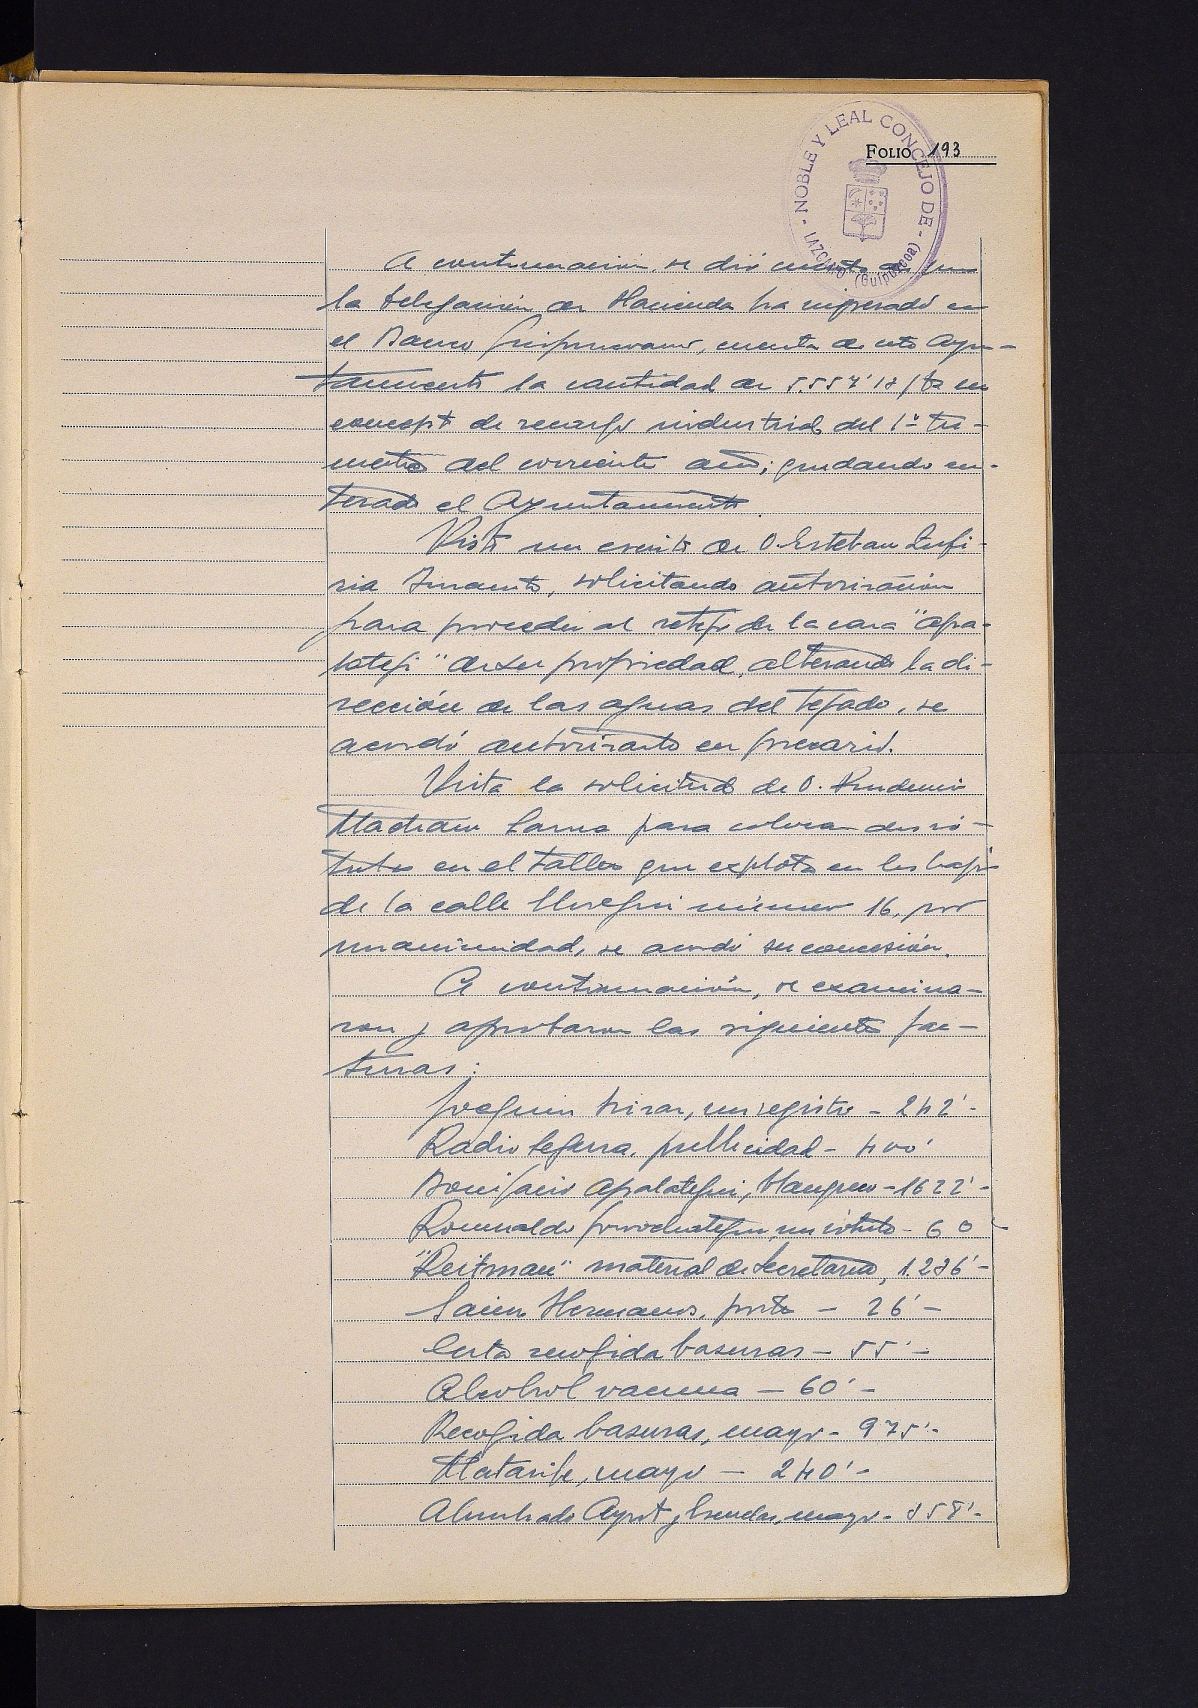 NOBLE Y LEAL CONCEJO DE
LAZCANO (Guipúzcoa)
FOLIO 193
A continuación, se dió cuenta de que
la Delegación de Hacienda ha ingresado en
el Banco Guipuzcoano, cuenta de este Ayun-
tamiento la cantidad de 5.557'18 ptas en
concepto de recargo industrial del 1º tri-
mestre del corriente año; quedando en-
terado el Ayuntamiento.
Visto un escrito de D. Esteban Zufi-
ria Imaz, solicitando autorización
para proceder al retejo de la casa "Apa-
lategi" de su propiedad, alterando la di-
rección de las aguas del tejado, se
acordó autorizarlo en precario.
Vista la solicitud de D. Prudencio
para colocar dos ró-
tulos en el taller que explota en los bajos
de la calle número 16, por
unanimidad, se acordó su concesión.
A continuación, se examina-
ron y aprobaron las siguientes fac-
turas:
Joaquin un registro - 242'-
Radio Segura, publicidad - 400'
Bonifacio Apalategui, - 1622'-
Romualdo Goicoechea un rótulo - 60
"Reitman" material de Secretaría, 1.236'-
Hermanos, porte - 26'-
Cesta recogida basuras - 55'-
Alcohol vacuna - 60'-
Recogida basuras, mayo - 975'-
Matarife, mayo - 240'-
Alumbrado Ayto y Escuelas, mayo - 858'-